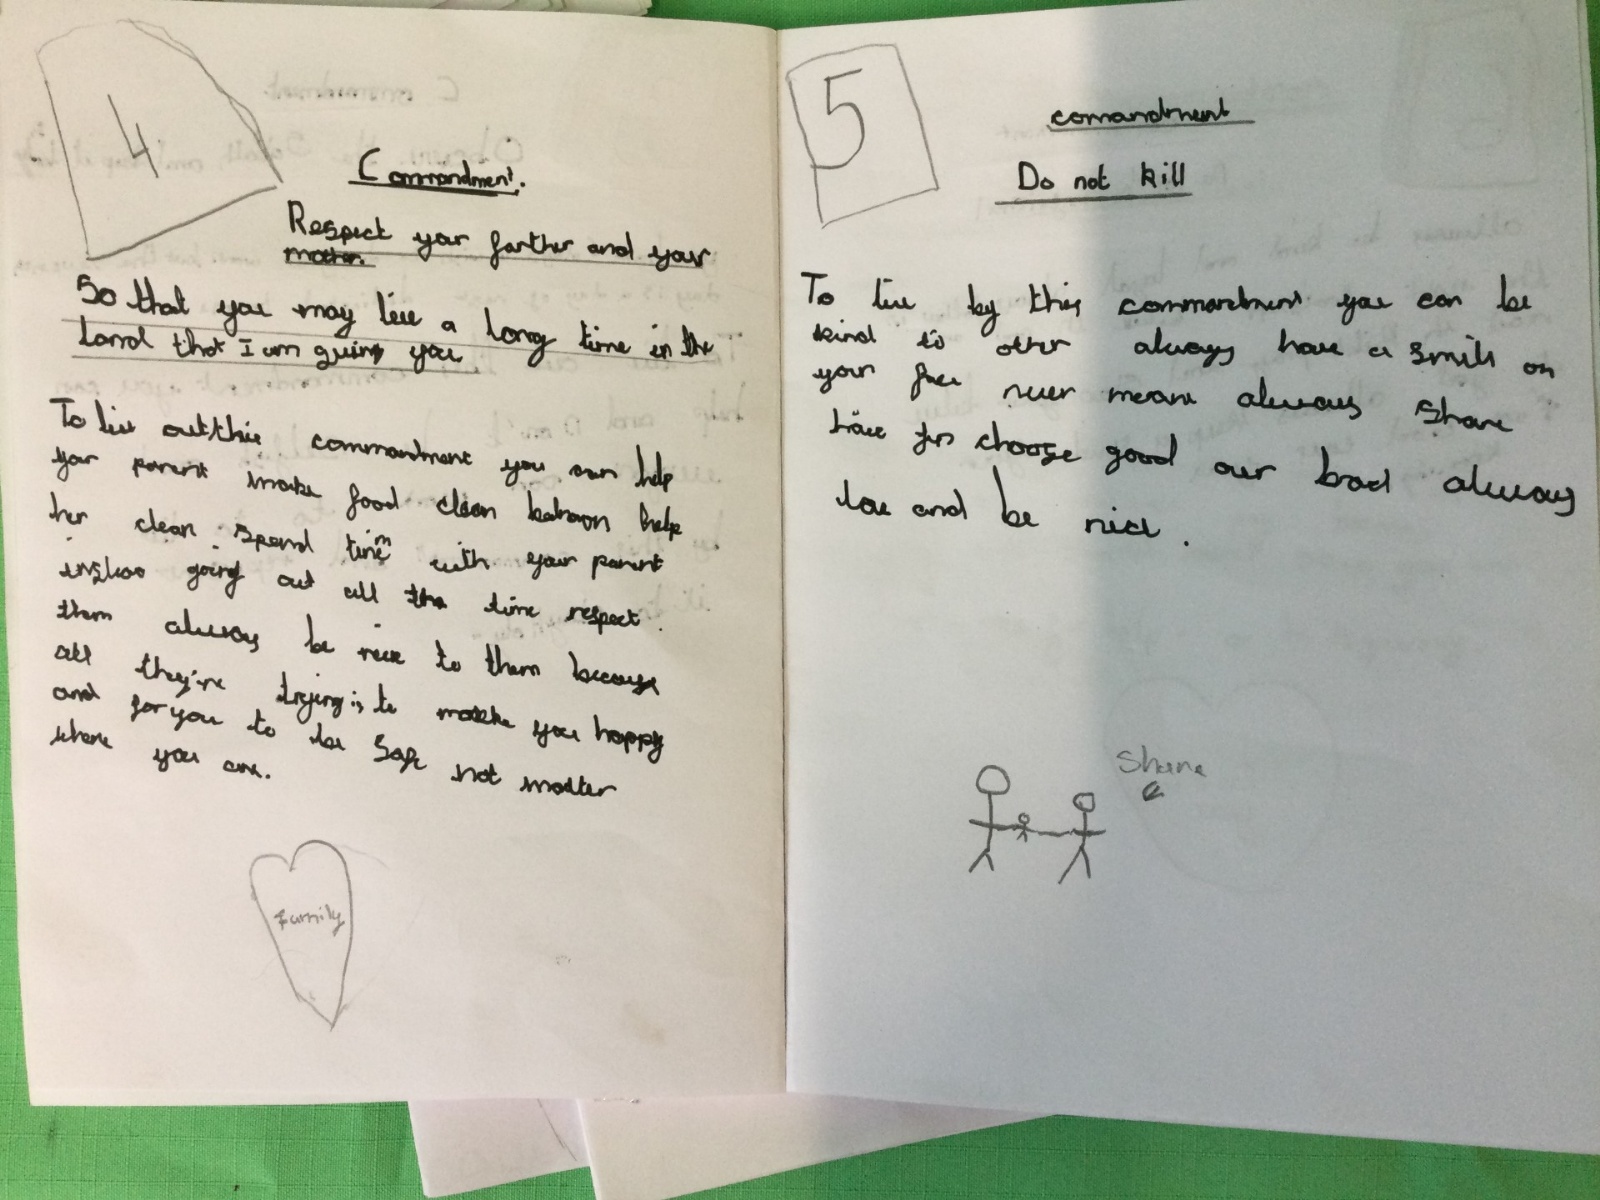 4
Commandment.
Respect your farther and your
mother.
So that you may live a long time in the
Land that I am giving you
To live out this commandment you can help
your parent make food clean help
her clean. Spend time with your parent
going out all the time respect.
them always be nice to them because
all they're trying is to make you happy
and for you to be safe not matter
where you are.
Family
5
comandment
Do not kill
To live by this commandment you can be
kind to other always have a smile on
your face never meane always Share
choose good our bad always
love and be nice.
Share